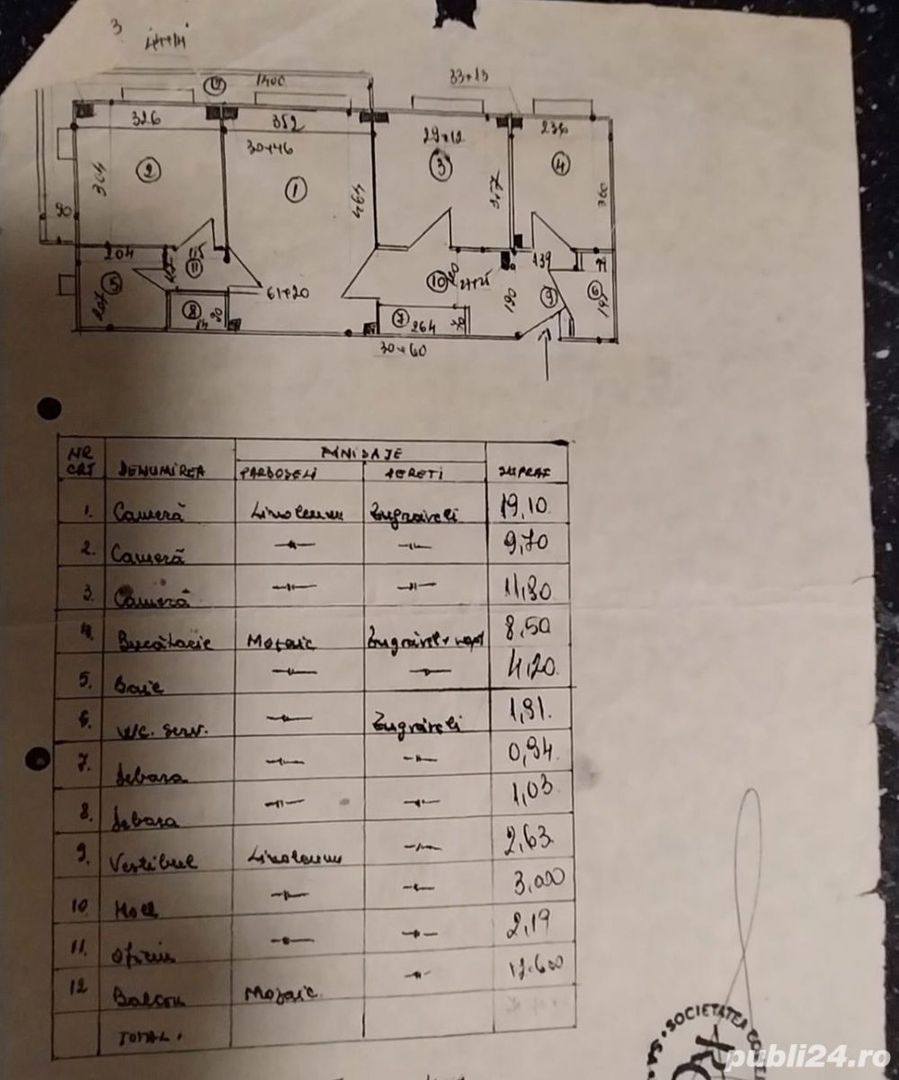 3
12
1400
33+13
326
352
29+12
236
30+46
2
1
3
4
364
464
357
360
90
204
115
11
139
5
10
9
6
207
61+20
190
8
7
264
90
30+60
NR CRT DENUMIREA FINISAJE SUPRAF
PARDOSELI PERETI
1. Cameră Linoleum Zugrăveli 19,10
2. Cameră —"— —"— 9,70
3. Cameră —"— —"— 11,80
4. Bucătarie Mozaic 8,50
5. Baie —"— —"— 4,20
6. WC. serv. —"— Zugrăveli 1,91
7. Debara —"— —"— 0,94
8. Debara —"— —"— 1,03
9. Vestibul Linoleum —"— 2,63
10 Holl —"— —"— 3,000
11. Oficiu —"— —"— 2,19
12 Balcon Mozaic —"— 12.600
TOTAL.
SOCIETATEA
publi24.ro